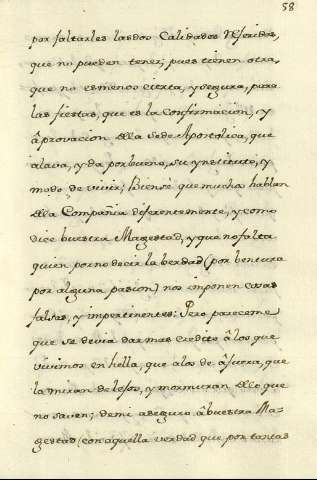 58
por faltarles las dos Calidades Referidas,
que no pueden tener; pues tienen otra,
que no es menos cierta, y segura, para
las fiestas, que es la Confirmacion, y
âprovacion ella Sede Apostolica, que
alava, y da por bueno, su ynstituto, y
modo de vivir; Bien sè que mucha hablan
ella Compañia diferentemente, y como
dice buestra Magestad, y que no falta
quien por no decir la berdad (por bentura
por alguna pasion) nos imponen cosas
falsas, y impertinentes: Pero pareceme
que se devia dar mas credito â los que
vivimos en hella, que a los de âfuera, que
la miran de lejos, y mormuran ello que
no saven; de mi aseguro â buestra Ma-
gestad (con aquella verdad que por tantas